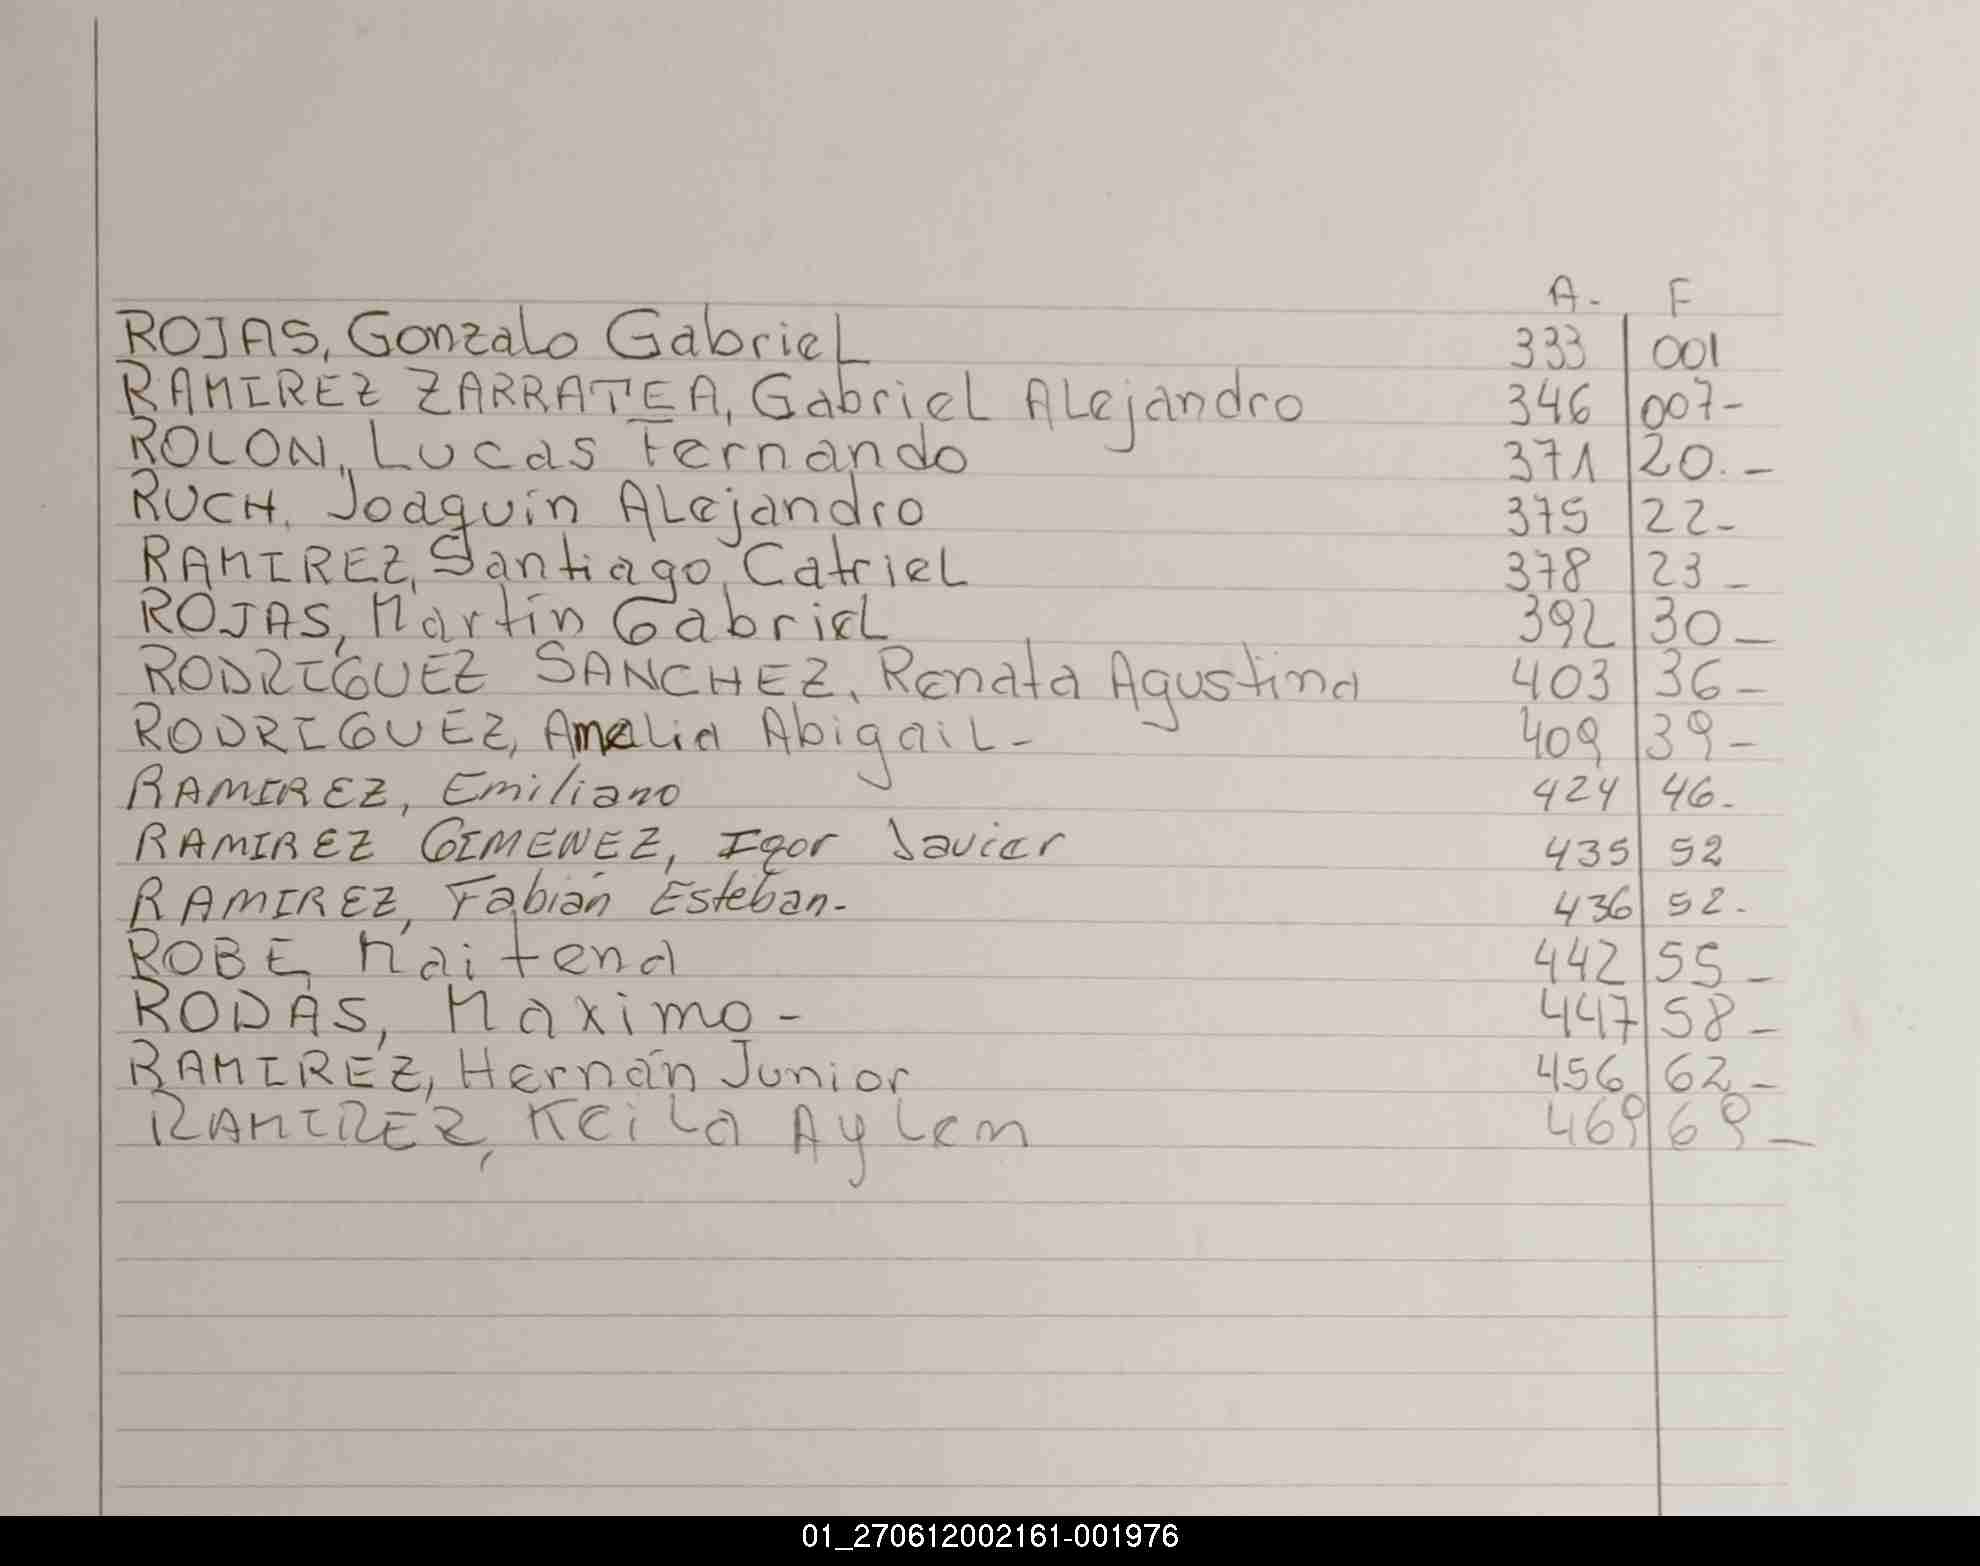 A- F
ROJAS, Gonzalo Gabriel 333 001
RAMIREZ ZARRATEA, Gabriel Alejandro 346 007-
ROLON, Lucas Fernando 371 20.-
RUCH, Joaquín Alejandro 375 22-
RAMIREZ, Santiago Catriel 378 23-
ROJAS, Martín Gabriel 392 30-
RODRIGUEZ SANCHEZ, Renata Agustina 403 36-
RODRIGUEZ, Amelia Abigail- 409 39-
RAMIREZ, Emiliano 424 46-
RAMIREZ GIMENEZ, Igor Javier 435 52
RAMIREZ, Fabián Esteban- 436 52-
ROBE, Maitena 442 55-
RODAS, Maximo- 447 58-
RAMIREZ, Hernán Junior 456 62-
RAMIREZ, Keila Aylem 469 69-
01_270612002161-001976